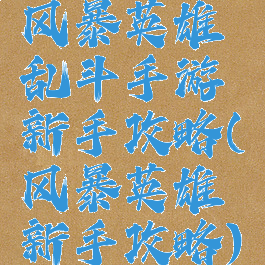 风暴英雄
乱斗手游
新手攻略(
风暴英雄
新手攻略)